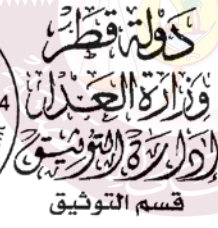 دولة قطر
وزارة العدل
إدارة التوثيق
قسم التوثيق
4